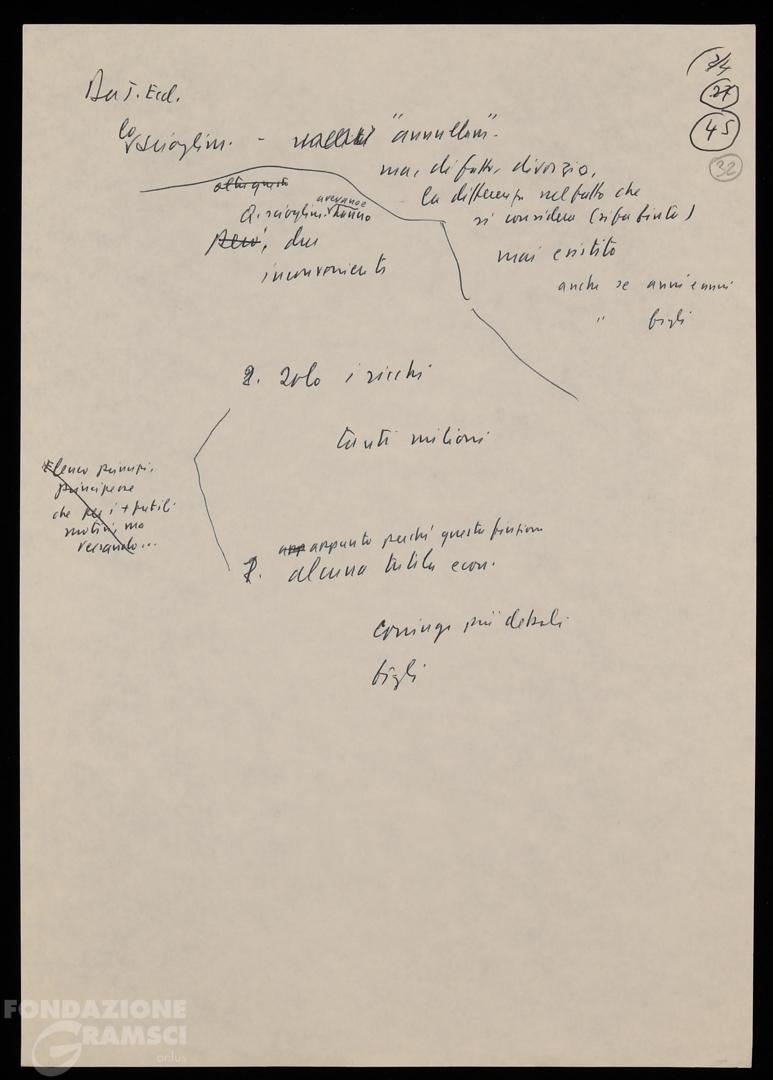 24
27
45
32
Da T. Eccl.
lo
scioglim. - "annullam".
ma, di fatto, divorzio,
la differenza nel fatto che
si considera (si fa finta)
mai esistito
anche se anni e anni
" figli
altri questi
avevano
Q. scioglim. hanno
Però, due
inconvenienti
1. solo i ricchi
tanti milioni
Elenco principi,
principesse
che per i + futili
motivi, ma
versando...
app appunto perché questa finzione
2. alcuna tutela econ.
coniuge più debole
figli
FONDAZIONE
GRAMSCI
onlus